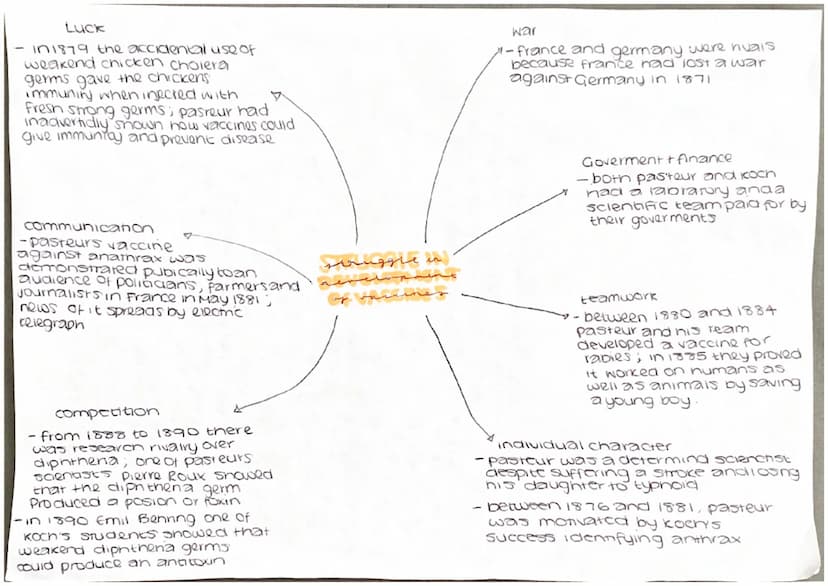 Luck
- in 1879 the accidental use of
weakend chicken cholera
germs gave the chickens
immunity when injected with
fresh strong germs; pasteur had
inadvertidly shown how vaccines could
give immunity and prevent disease
war
- france and germany were rivals
because france had lost a war
against Germany in 1871
Goverment + finance
- both pasteur and koch
had a labratory and a
scientific team paid for by
their goverments
communication
- pasteurs vaccine
against anathrax was
demonstrated pubically to an
audience of politicians, farmers and
journalists in France in May 1881;
news of it spreads by electric
telegraph
STRUGGLE IN
DEVELOPMENT
OF VACCINES
teamwork
- between 1880 and 1884
pasteur and his team
developed a vaccine for
rabies; in 1885 they proved
it worked on humans as
well as animals by saving
a young boy.
competition
- from 1888 to 1890 there
was research rivalry over
diphtheria; one of pasteurs
scienasts Pierre Roux showed
that the diphtheria germ
produced a posion or toxin
- in 1890 Emil Behring one of
koch's students showed that
weakend diphtheria germs
could produce an
individual character
- pasteur was a determind scientist
despite suffering a stroke and losing
his daughter to typhoid
- between 1876 and 1881, pasteur
was motivated by koch's
success identifying anthrax